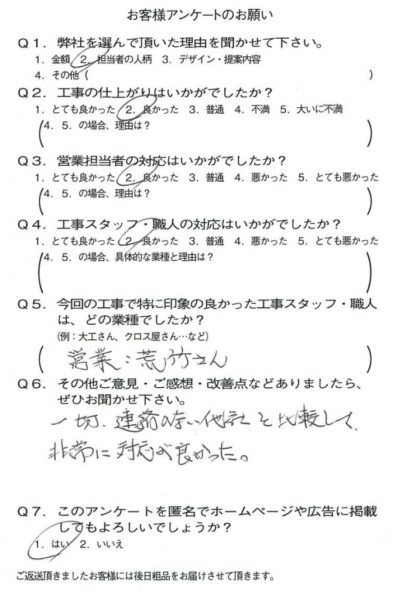 お客様アンケートのお願い
Q1. 弊社を選んで頂いた理由を聞かせて下さい。
1. 金額 2. 担当者の人柄 3. デザイン・提案内容
4. その他( )
Q2. 工事の仕上がりはいかがでしたか?
1. とても良かった 2. 良かった 3. 普通 4. 不満 5. 大いに不満
(4. 5. の場合、理由は? )
Q3. 営業担当者の対応はいかがでしたか?
1. とても良かった 2. 良かった 3. 普通 4. 悪かった 5. とても悪かった
(4. 5. の場合、理由は? )
Q4. 工事スタッフ・職人の対応はいかがでしたか?
1. とても良かった 2. 良かった 3. 普通 4. 悪かった 5. とても悪かった
(4. 5. の場合、具体的な業種と理由は? )
Q5. 今回の工事で特に印象の良かった工事スタッフ・職人
は、どの業種でしたか?
(例:大工さん、クロス屋さん…など)
(営業:荒竹さん )
Q6. その他ご意見・ご感想・改善点などありましたら、
ぜひお聞かせ下さい。
一切、連絡のない他社と比較して、
非常に対応が良かった。
Q7. このアンケートを匿名でホームページや広告に掲載
してもよろしいでしょうか?
1. はい 2. いいえ
ご返送頂きましたお客様には後日粗品をお届けさせて頂きます。